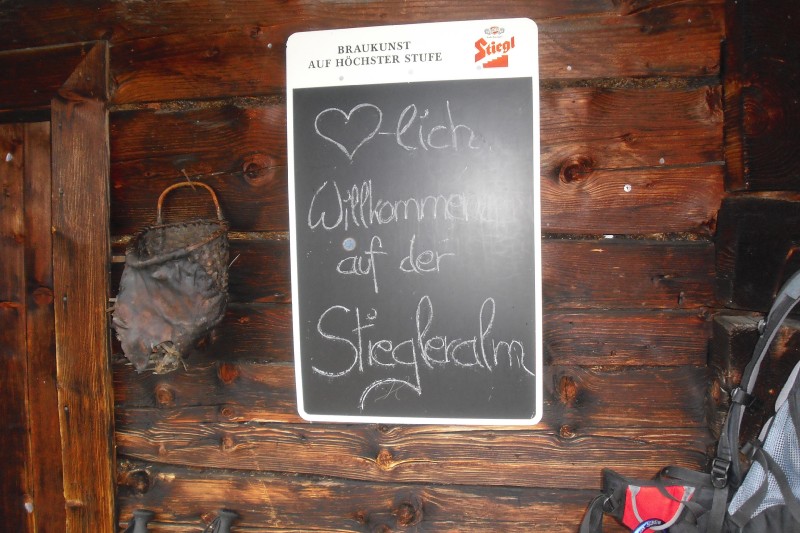 BRAUKUNST
AUF HÖCHSTER STUFE
Stiegl
♥-lich
Willkommen
auf der
Stiegleralm